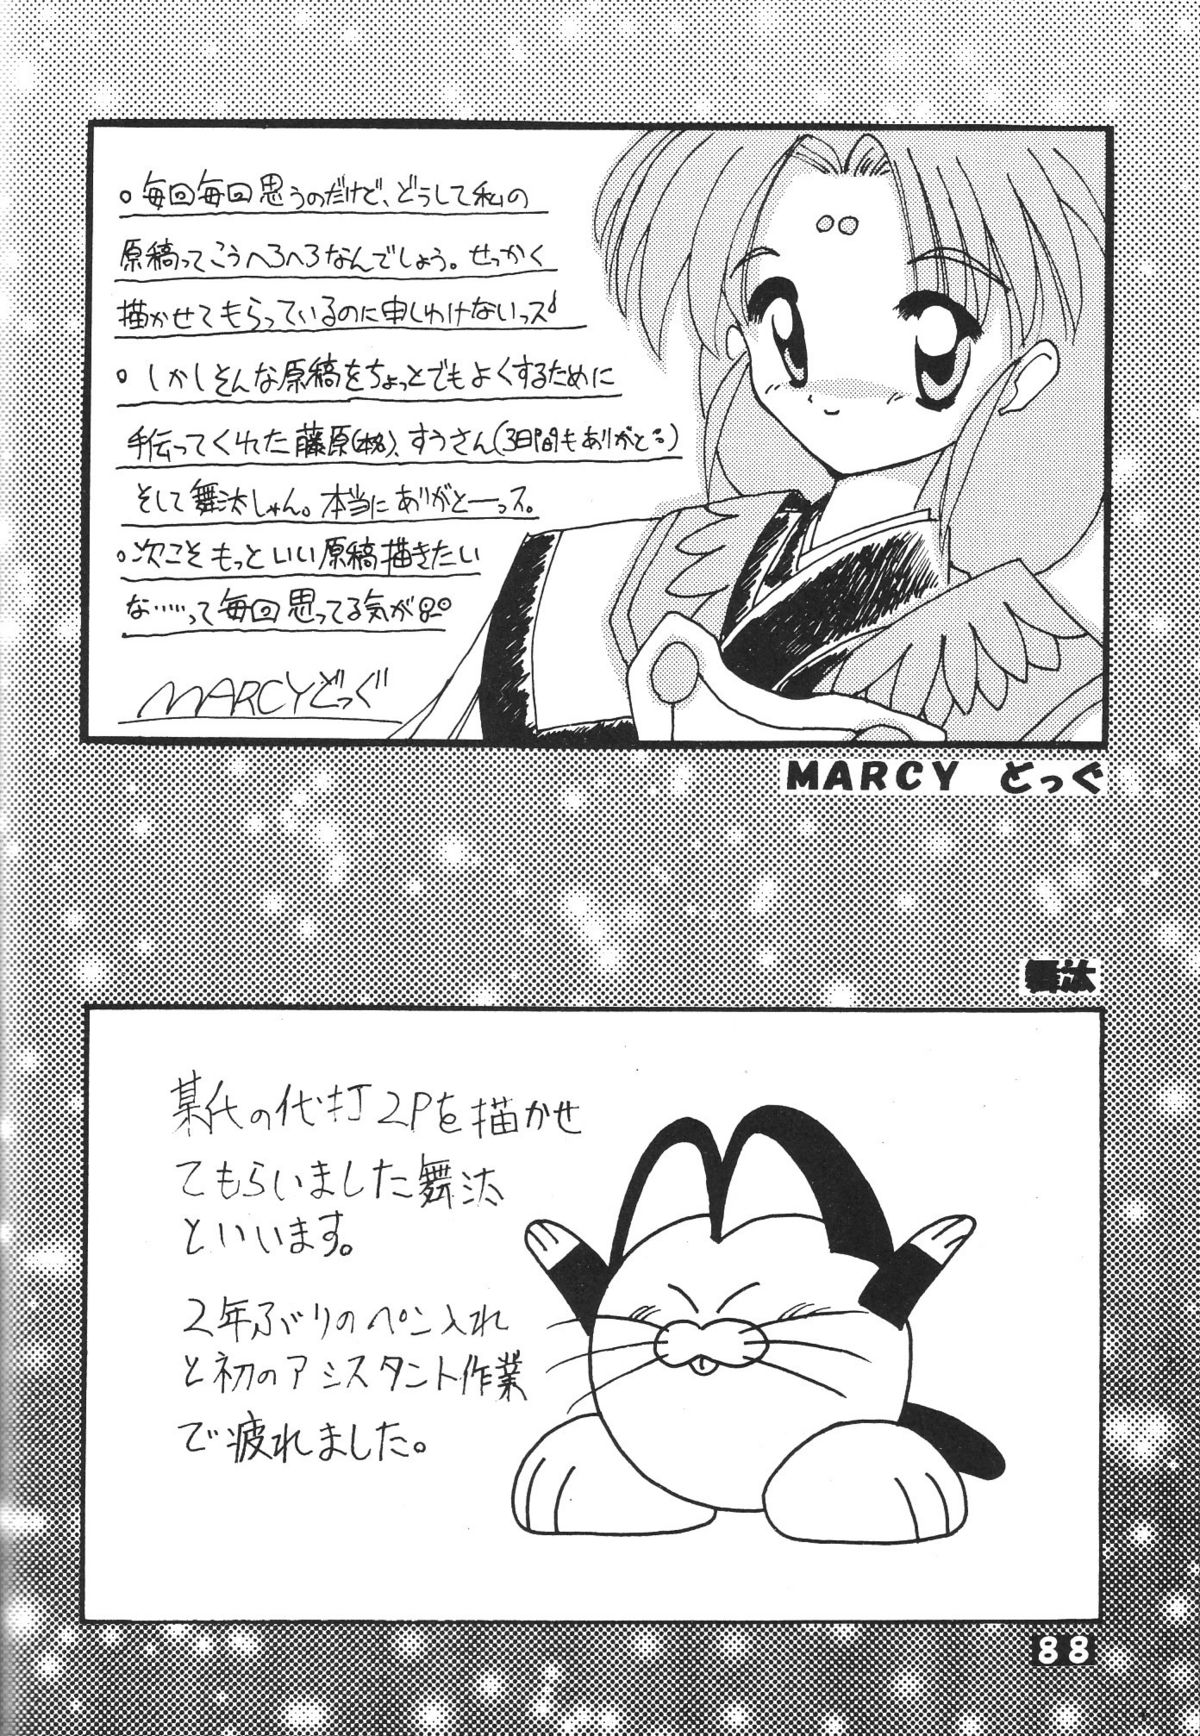 。毎回毎回思うのだけど、どうして私の
原稿ってこうへろへろなんでしょう。せっかく
描かせてもらっているのに申しわけないっス
。しかしそんな原稿をちょっとでもよくするために
手伝ってくれた藤原(本名)、すうさん(3日間もありがと)
そして舞汰しゃん。本当にありがとーっス。
。次こそもっといい原稿描きたい
な……って毎回思ってる気が
MARCYどっぐ
MARCY どっぐ
舞汰
某氏の代打2Pを描かせ
てもらいました舞汰
といいます。
2年ぶりのペン入れ
と初のアシスタント作業
で疲れました。
88